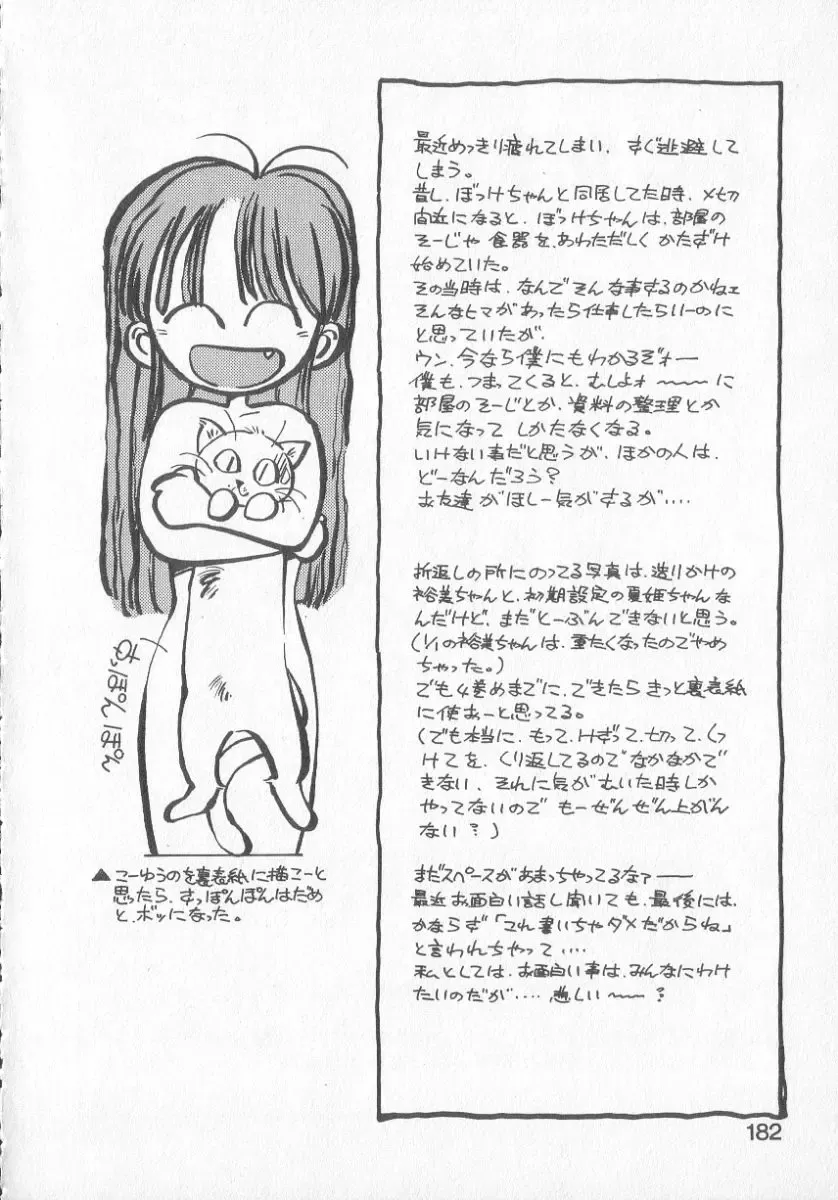 最近めっきり疲れてしまい、すぐ逃避して
しまう。
昔し、ぼっけちゃんと同居してた時、メ切
間近になると、ぼっけちゃんは、部屋の
そーじや 食器を、あわただしく かたずけ
始めていた。
その当時は、なんでそんな事するのかねェ
そんなヒマがあったら仕事したらいーのに
と思っていたが、
ウン、今なら僕にもわかるぞォー
僕も、つまってくると、むしょォ〜〜に
部屋のそーじとか、資料の整理とか
気になって しかたなくなる。
いけない事だと思うが、ほかの人は、
どーなんだろう?
お友達がほしー気がするが‥‥
折返しの所にのってる写真は、造りかけの
裕美ちゃんと、初期設定の夏姫ちゃんな
んだけど、まだとーぶんできないと思う。
(1/1の裕美ちゃんは、重たくなったのでやめ
ちゃった。)
でも4巻めまでに、できたら きっと裏表紙
に使おーと思ってる。
(でも本当に、もって、けずって、切って、くっ
けてを、くり返してるので なかなかで
きない、それに気がむいた時しか
やってないので もーぜんぜん上がん
ない?)
まだスペースがあまっちゃってるなァ──
最近お面白い話し聞いても、最後には、
かならず「これ書いちゃダメだからね」
と言われちゃって‥‥
私としては、お面白い事は、みんなにわけ
たいのだが‥‥、悲しい〜〜?
すっぽんぽん
▲こーゆうのを裏表紙に描こーと
思ったら、すっぽんぽんはだめ
と、ボツになった。
182